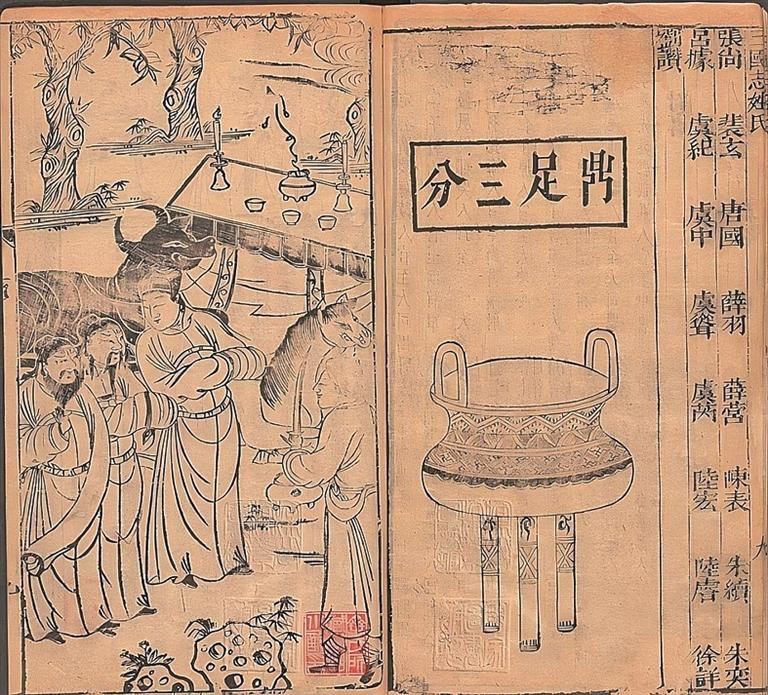 三國志姓氏
九
張尚 裴玄 唐國 薛羽 薛營 陳表 朱續 朱奕
呂據 虞紀 虞中 虞聳 虞 陸宏 陸 徐詳
讚
鼎足三分